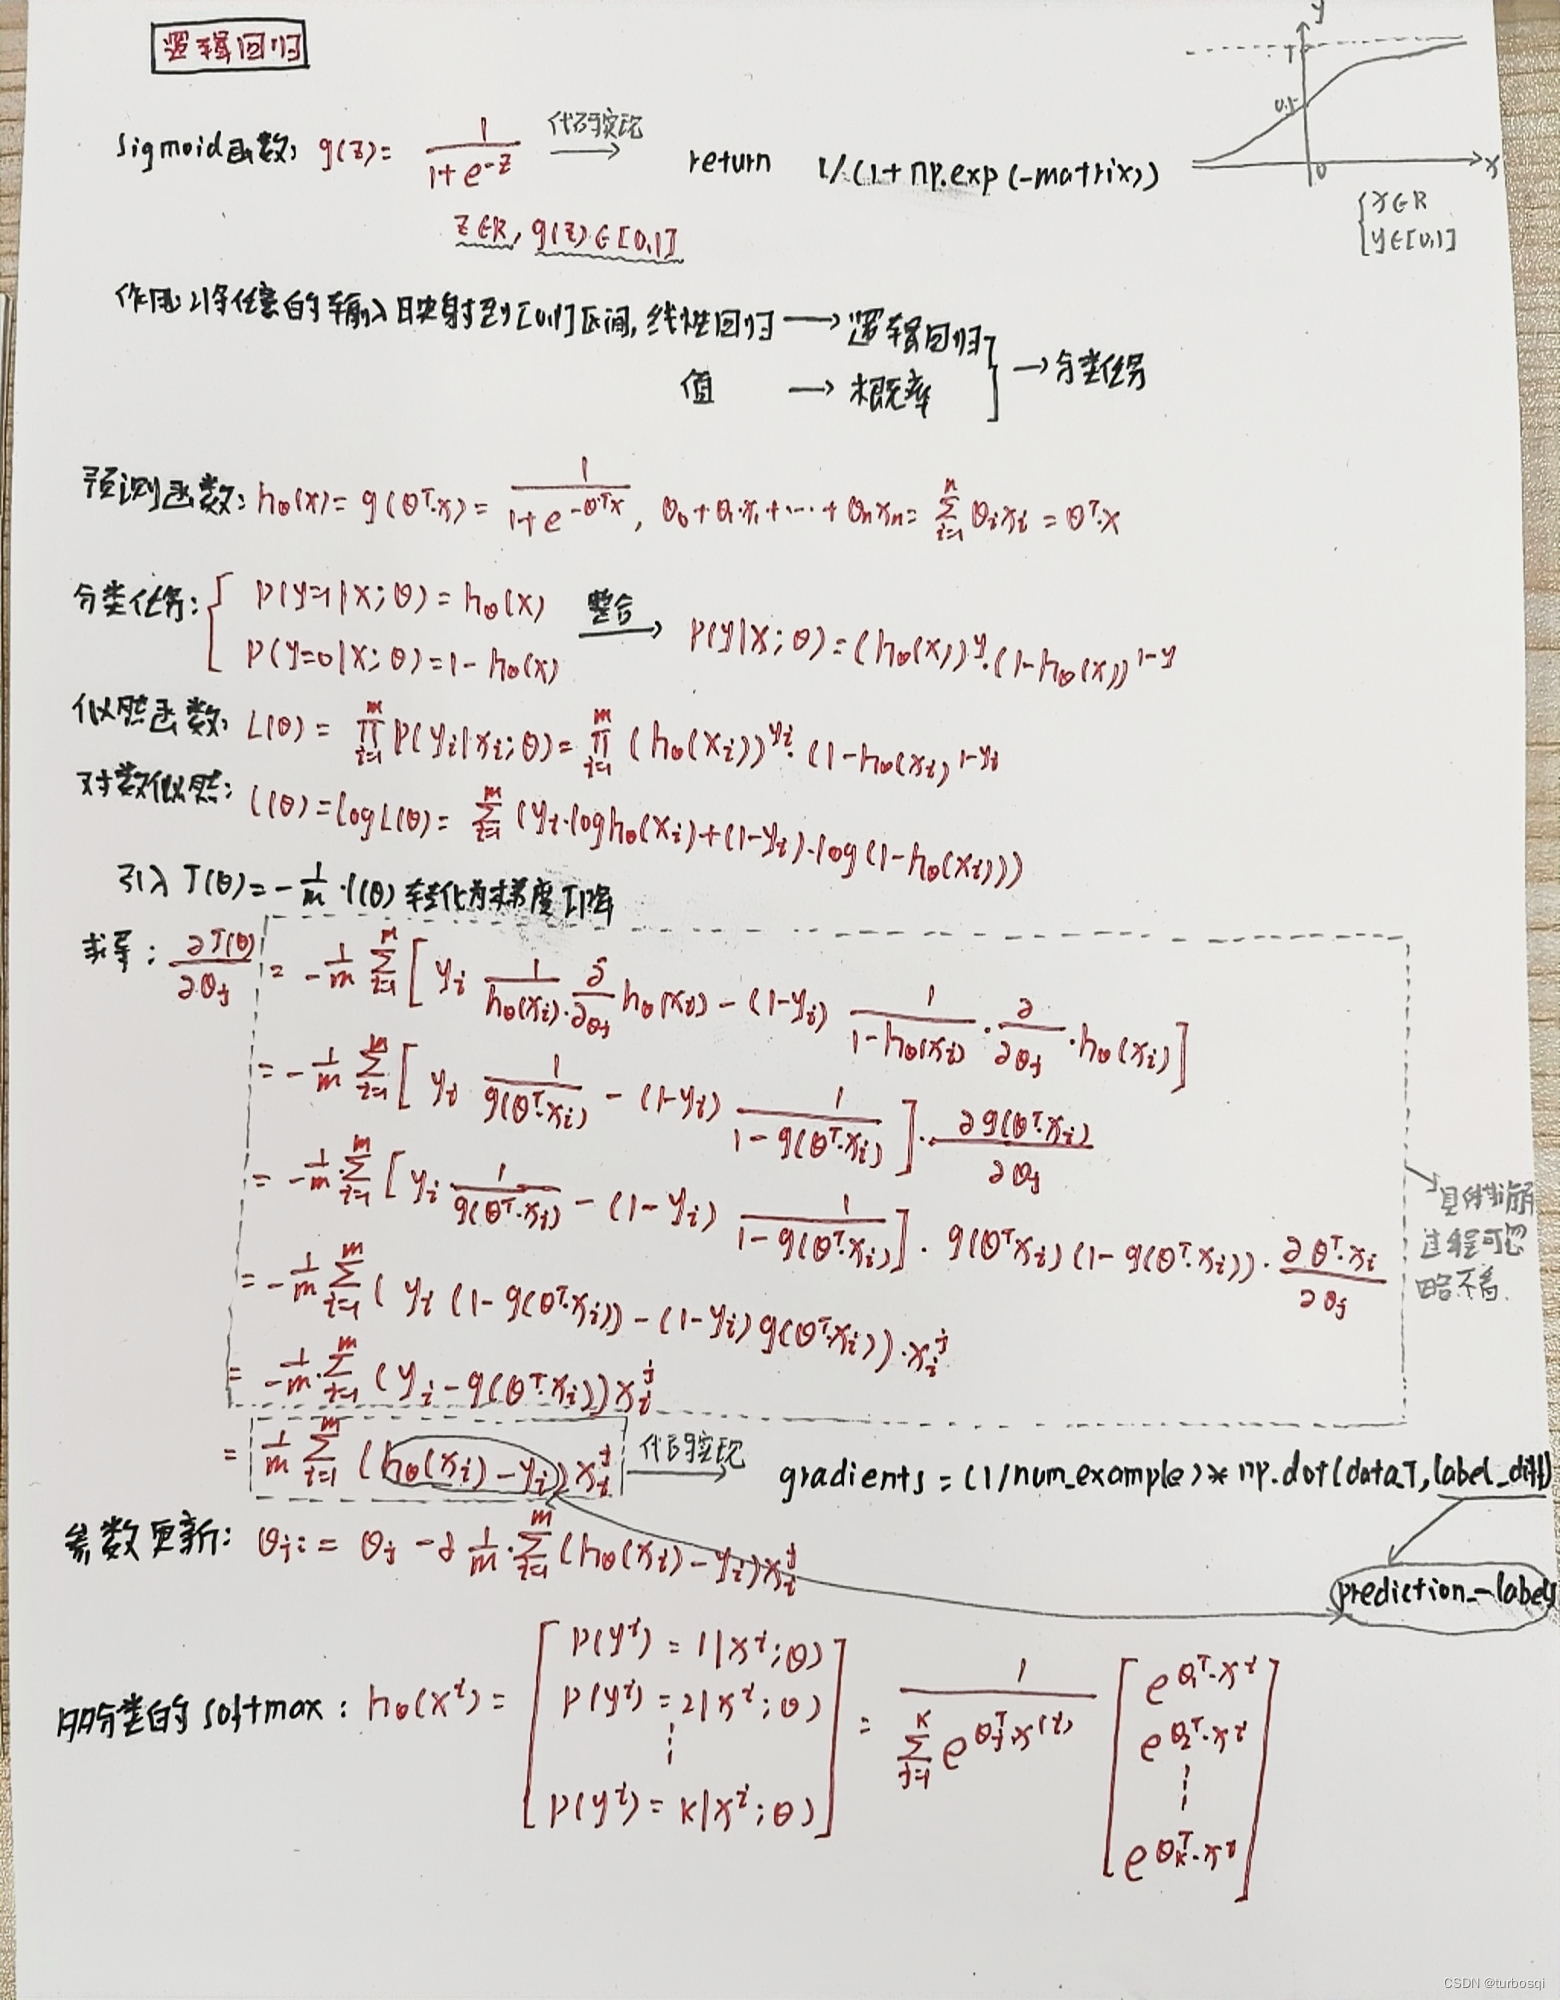 逻辑回归
y
1
0.5
0
x
sigmoid函数: g(z)= 1/(1+e^{-z}) 代码实现→ return 1/(1+np.exp(-matrix))
z∈R, g(z)∈[0,1]
{x∈R
y∈[0,1]
作用:将任意的输入映射到[0,1]区间, 线性回归→逻辑回归
值 → 概率 } →分类任务
预测函数: h_θ(x)= g(θ^T·x)= 1/(1+e^{-θ^T x}), θ_0+θ_1·x_1+···+θ_n x_n= Σ_{i=1}^{n} θ_i x_i = θ^T·x
分类任务: { P(y=1|x;θ)=h_θ(x)
P(y=0|x;θ)=1-h_θ(x) 整合→ P(y|x;θ)=(h_θ(x))^y·(1-h_θ(x))^{1-y}
似然函数: L(θ)= Π_{i=1}^{m} P(y_i|x_i;θ)= Π_{i=1}^{m} (h_θ(x_i))^{y_i}·(1-h_θ(x_i)^{1-y_i}
对数似然: l(θ)=logL(θ)= Σ_{i=1}^{m} (y_i·logh_θ(x_i)+(1-y_i)·log(1-h_θ(x_i)))
引入 J(θ)=-1/m·l(θ) 转化为梯度下降
求导: ∂J(θ)/∂θ_j = -1/m Σ_{i=1}^{m} [ y_i 1/h_θ(x_i)·∂/∂θ_j h_θ(x_i) - (1-y_i) 1/(1-h_θ(x_i))·∂/∂θ_j·h_θ(x_i) ]
= -1/m Σ_{i=1}^{m} [ y_i 1/g(θ^T·x_i) - (1-y_i) 1/(1-g(θ^T·x_i)) ]·∂g(θ^T·x_i)/∂θ_j
= -1/m·Σ_{i=1}^{m} [ y_i 1/g(θ^T·x_i) - (1-y_i) 1/(1-g(θ^T·x_i)) ]·g(θ^T x_i)(1-g(θ^T·x_i))·∂θ^T·x_i/∂θ_j
过程可忽
略不看.
= -1/m Σ_{i=1}^{m} ( y_i (1-g(θ^T·x_i)) - (1-y_i)g(θ^T·x_i))·x_i^j
= -1/m·Σ_{i=1}^{m} (y_i-g(θ^T·x_i))x_i^j
= 1/m Σ_{i=1}^{m} (h_θ(x_i)-y_i)x_i^j 代码实现→ gradients=(1/num_example)*np.dot(data.T,label_diff)
参数更新: θ_j:= θ_j -α 1/m·Σ_{i=1}^{m}(h_θ(x_i)-y_i)x_i^j
prediction_-labels
分类的softmax: h_θ(x^i)= [ P(y^i)=1|x^i;θ)
P(y^i)=2|x^i;θ)
⋮
P(y^i)=K|x^i;θ) ] = 1/(Σ_{j=1}^{K} e^{θ_j^T·x^{(i)}}) [ e^{θ_1^T·x^i}
e^{θ_2^T·x^i}
⋮
e^{θ_K^T·x^i} ]
CSDN @turbosqi